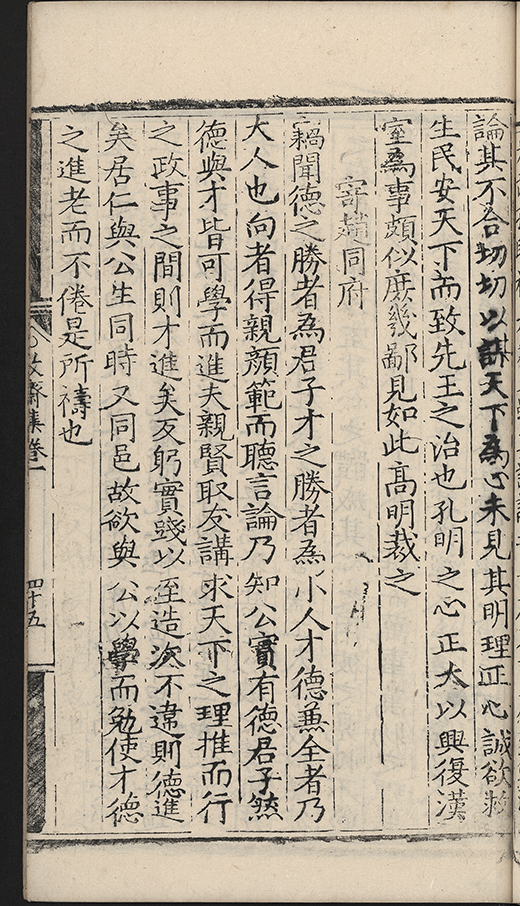 論其不合切切以講天下為心未見其明理正心誠欲救
生民安天下而致先王之治也孔明之心正大以興復漢
室為事頗似庶幾鄙見如此高明裁之
寄趙同府
竊聞德之勝者為君子才之勝者為小人才德兼全者乃
大人也向者得親顏範而聽言論乃知公實有德君子然
德與才皆可學而進夫親賢取友講求天下之理推而行
之政事之間則才進矣反躬實踐以至造次不違則德進
矣居仁與公生同時又同邑故欲與公以學而勉使才德
之進老而不倦是所禱也
敬齋集卷一
四十五